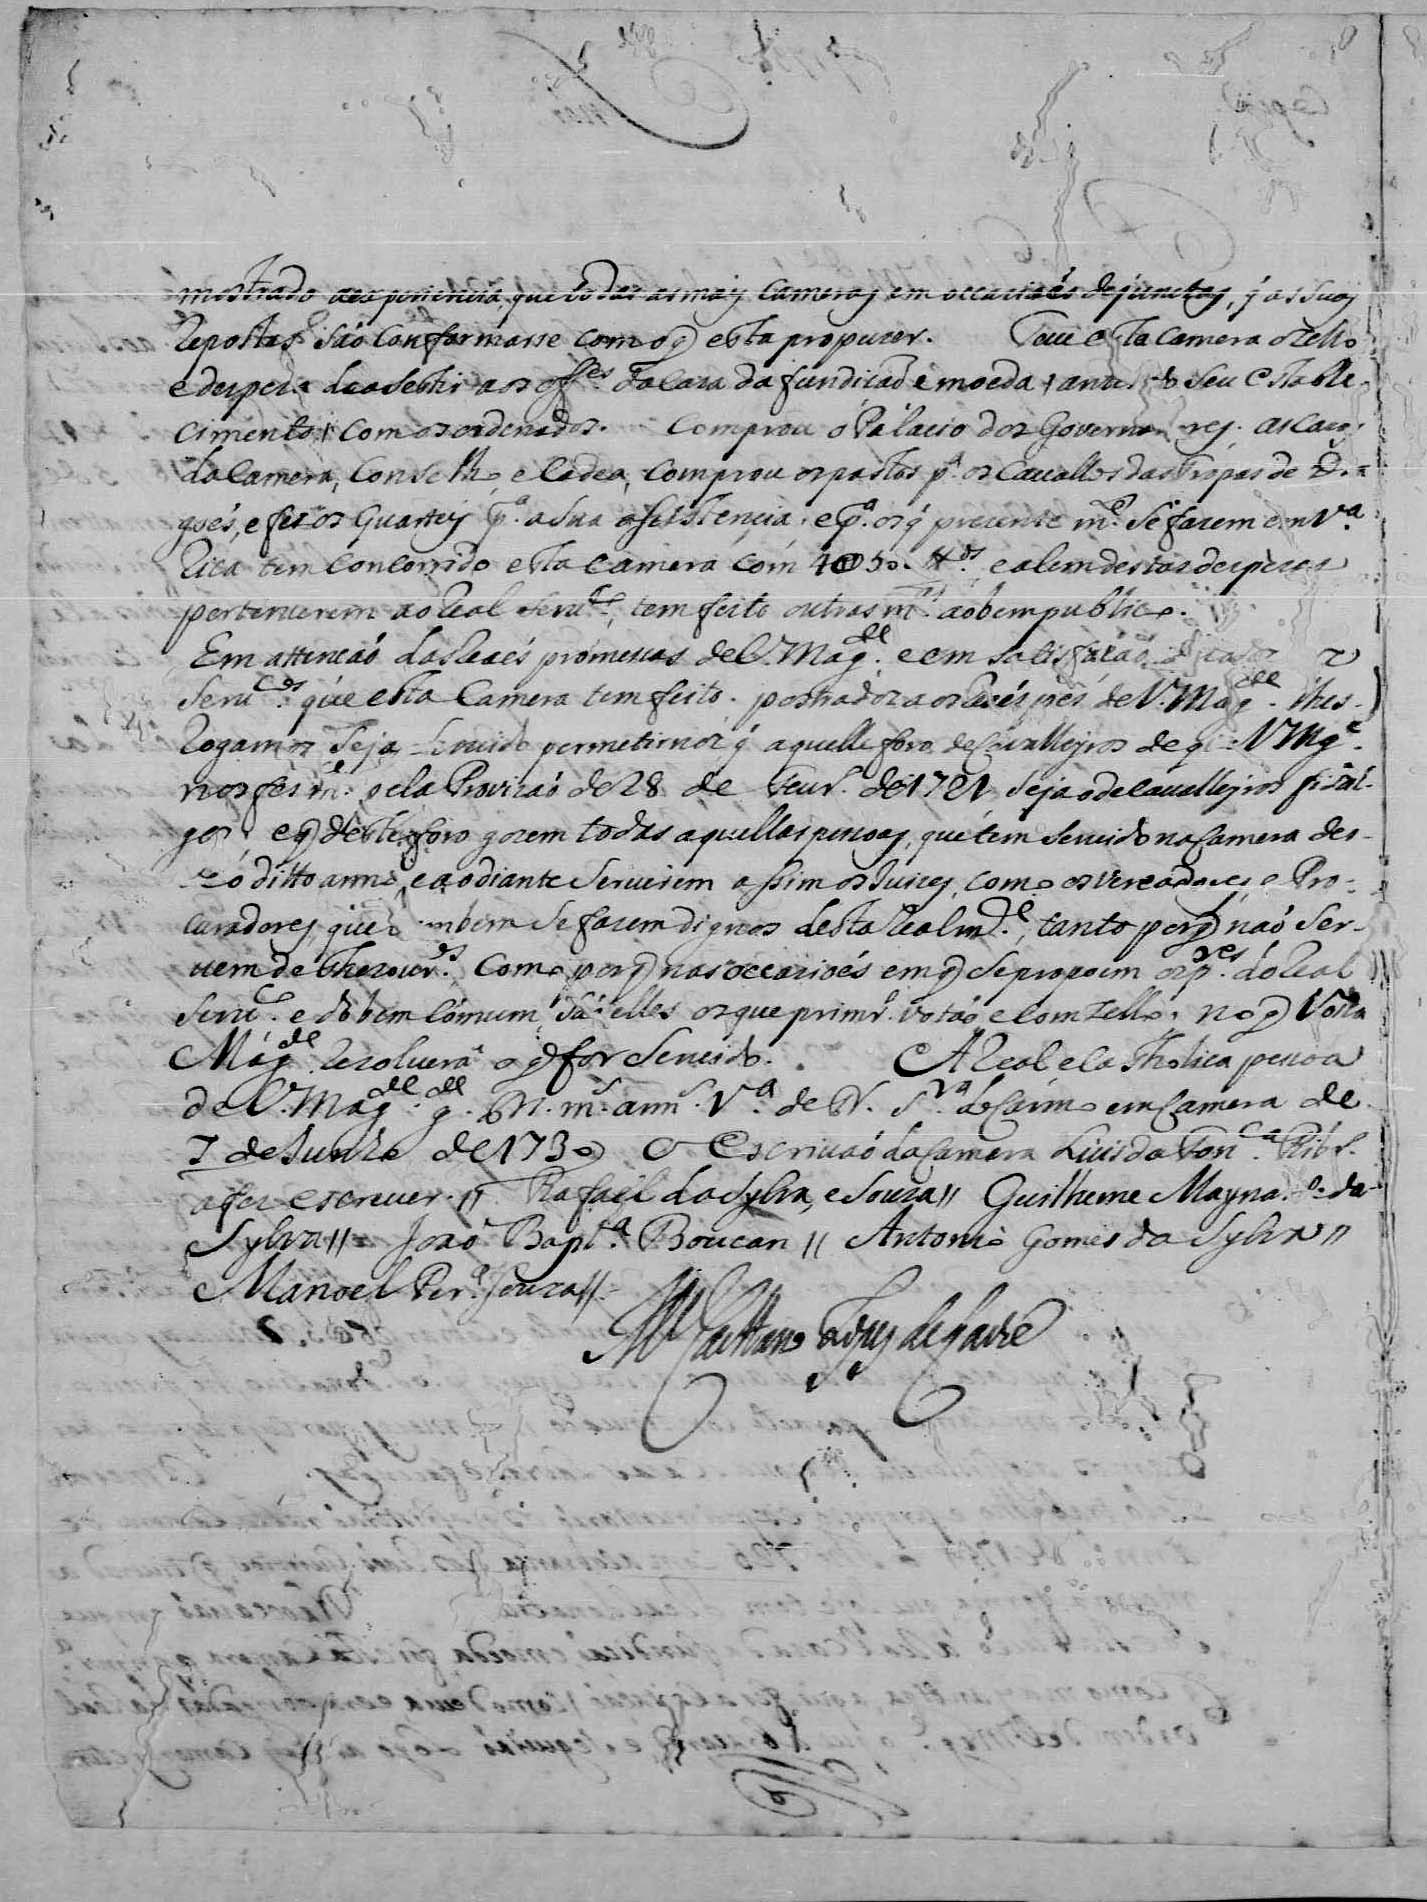 mostrado aexperiencia, que todas asmais Cameras em occasioés dejunctas, q̃ as suas
Repostas são Conformarse com oq̃ esta propuzer. Teue esta Camera o zello
e despeza de asestir aos off.es da Caza da fundicaõ e moeda, antes do seu estable-
cimento, com os ordenados. Comprou o Palacio dos Governa res, as Cazas
da Camera, Conselho, e Cadea, Comprou os pastos p.a os Cauallos das Tropas de D.=
goés, e fez os Quarteis p.a a sua asistencia, e p.a os q̃ prezente m.te se fazem em V.a
Rica tem Concorrido esta Camera com
e alem destas despezas
pertencerem ao Real seru.co, tem feito outras m.tas ao bem publico.
Em attencaó das Reaés promessas de V. Mag.de e em satisfacaó
Seru.cos que esta Camera tem feito. postrados aos Reaés pés de V. Mag.de lhes
Rogamos Seja Seruido permetirnos q̃ aquelle foro de Cavalleyros de q̃ V Mg.e
nos fes m.ce pela Provizaó de 28 de Feur.o de 1721 Seja o de Caualleyros fidal-
gos, e q̃ deste foro gozem todas aquellas pessoas, que tem Seruido na Camera des-
de o ditto anno, e ao diante Seruirem assim os Juizes, como os Vereadores, e Pro-
curadores, que tambem se fazem dignos desta Real m.ce, tanto porq̃ naó Ser-
uem de Thezour.os, Como porq̃ nas occazioés em q̃ se propoem
do Real
Seru.co e do bem Cómum, Saó elles os que prim.ro Votaó e Com zello, no q̃ Vossa
Mag.de Rezoluerá o q̃ for Seruido. A Real e Catholica pessoa
de V. Mag.de g.de N. S. m.s ann.s V.a de N. S.ra do Carmo em Camera de
7 de Junho de 1730 O Escriuaó da Camera Luis da Fon.ca Ribr.o
a fez escreuer // Rafael da Sylva, e Souza // Guilherme Mayna.. da
Sylva // Joaó Bapt.a Boucan // Antonio Gomes da Sylva //
Manoel Per.a Souza //